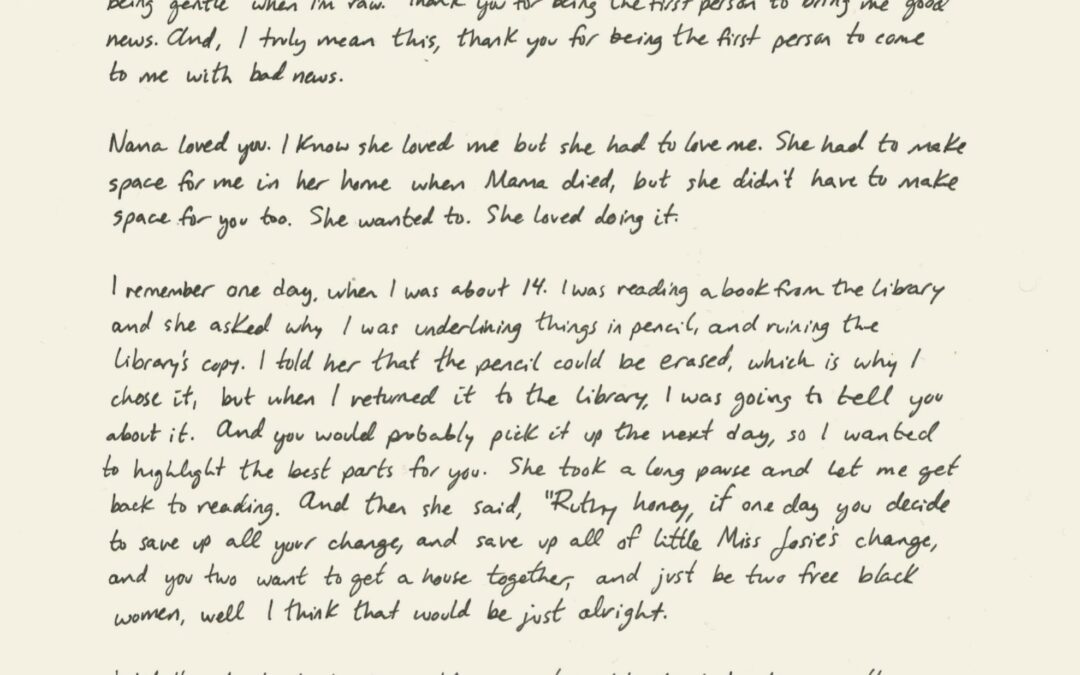 being gentle when I'm raw. Thank you for being the first person to bring me good
news. And, I truly mean this, thank you for being the first person to come
to me with bad news.
Nana loved you. I know she loved me but she had to love me. She had to make
space for me in her home when Mama died, but she didn't have to make
space for you too. She wanted to. She loved doing it.
I remember one day, when I was about 14. I was reading a book from the library
and she asked why I was underlining things in pencil, and ruining the
library's copy. I told her that the pencil could be erased, which is why I
chose it, but when I returned it to the library, I was going to tell you
about it. And you would probably pick it up the next day, so I wanted
to highlight the best parts for you. She took a long pause and let me get
back to reading. And then she said, "Ruthy honey, if one day you decide
to save up all your change, and save up all of little Miss Josie's change,
and you two want to get a house together, and just be two free black
women, well I think that would be just alright.